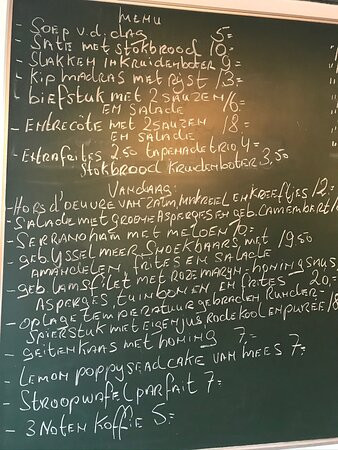 MENU
- SOEP V.D. DAG 5=
- SATÉ MET STOKBROOD 10=
- SLAKKEN IN KRUIDENBOTER 9=
- KIP MADRAS MET RIJST 13=
- BIEFSTUK MET 2 SAUZEN
EN SALADE 16=
- ENTRECÔTE MET 2 SAUZEN 18=
EN SALADE
- EXTRA FRITES 2,50 TAPENADE TRIO 4=
STOKBROOD KRUIDENBOTER 3,50
VANDAAG:
- HORS D'OEUVRE VAN ZALM, MAKREEL EN KREEFTJES 12=
- SALADE MET GROENE ASPERGES EN GEB. CAMEMBERT
- SERRANOHAM MET MELOEN 10=
- GEB. IJSSELMEER SNOEKBAARS MET 19,50
AMANDELEN, FRITES EN SALADE
- GEB. LAMSFILET MET ROZEMARIJN-HONINGSAUS
ASPERGES, TUINBONEN EN FRITES 20,=
- OP LAGE TEMPERATUUR GEBRADEN RUNDER-
SPIERSTUK MET EIGEN JUS RODEKOOL EN PUREE
- GEITENKAAS MET HONING 7,=
- LEMON POPPYSEADCAKE VAN MEES 7=
- STROOPWAFELPARFAIT 7=
- 3 NOTEN KOFFIE 5=